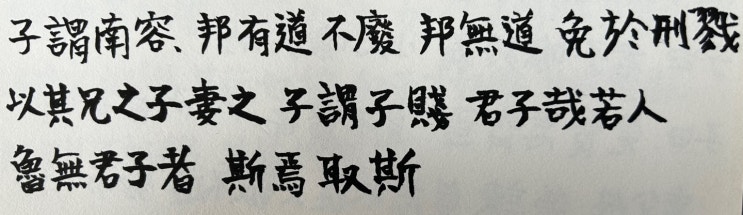 子謂南容、邦有道 不廢 邦無道 免於刑戮
以其兄之子妻之 子謂子賤 君子哉若人
魯無君子者 斯焉取斯